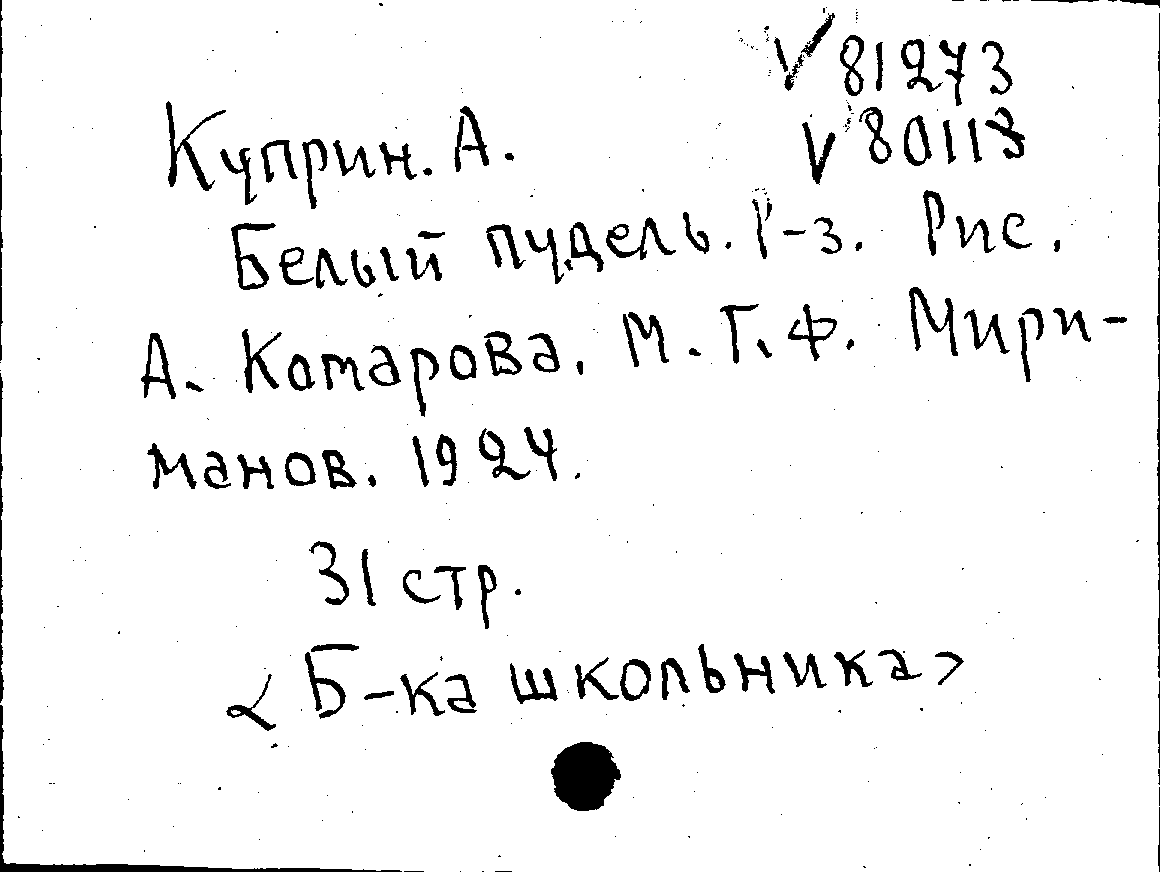 V 81273
V 80113
Куприн. А.
Белый пудель. Р-з. Рис.
А. Комарова. М. Г. Ф. Мири-
манов. 1924.
31 стр.
< Б-ка школьника >